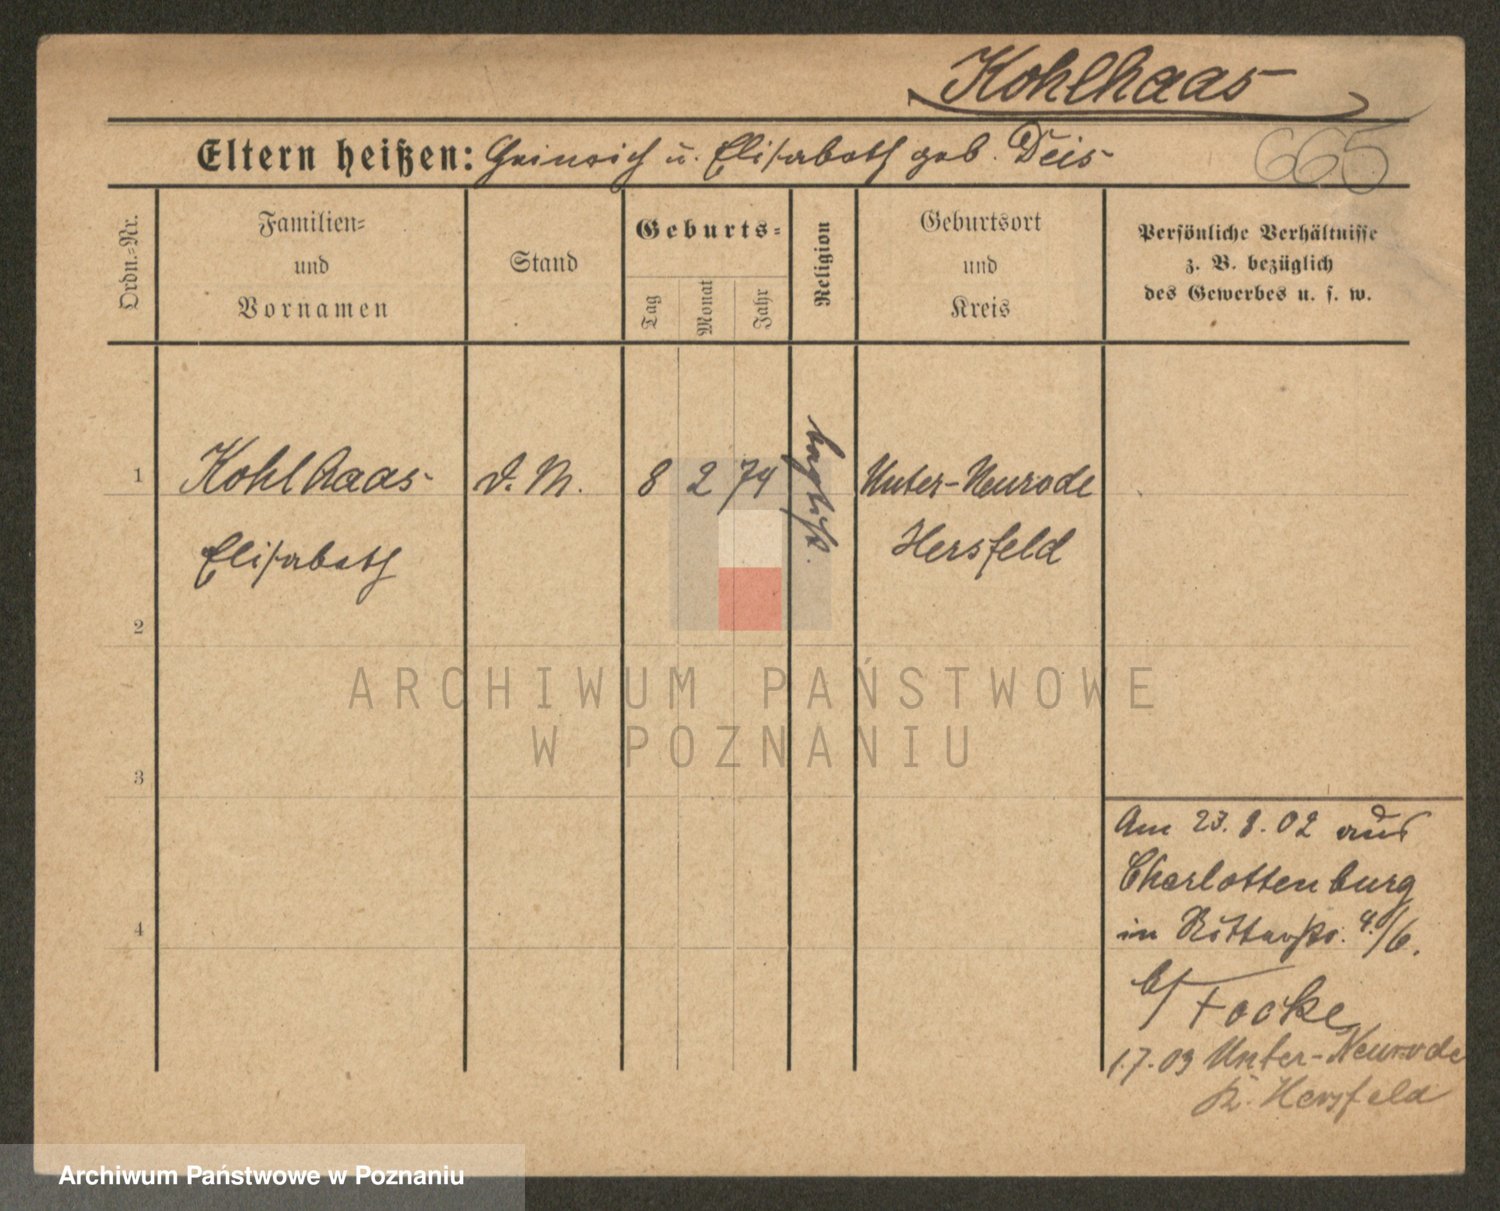 Kohlhaas
665
Eltern heißen: Heinrich u. Elisabeth geb. Deis
Ordn.=Nr.
Familien=
und
Vornamen
Stand
Geburts=
Tag
Monat
Jahr
Religion
Geburtsort
und
Kreis
Persönliche Verhältnisse
z. B. bezüglich
des Gewerbes u. s. w.
1
Kohlhaas
D. M. 8 2 74
Unter-Neurode
Elisabeth
Hersfeld
2
ARCHIWUM PAŃSTWOWE
W POZNANIU
3
Am 23. 8. 02 aus
Charlottenburg
4
in Ritterstr. 4/6.
b/ Focke
1.7.03 Unter-Neurode
K. Hersfeld
Archiwum Państwowe w Poznaniu